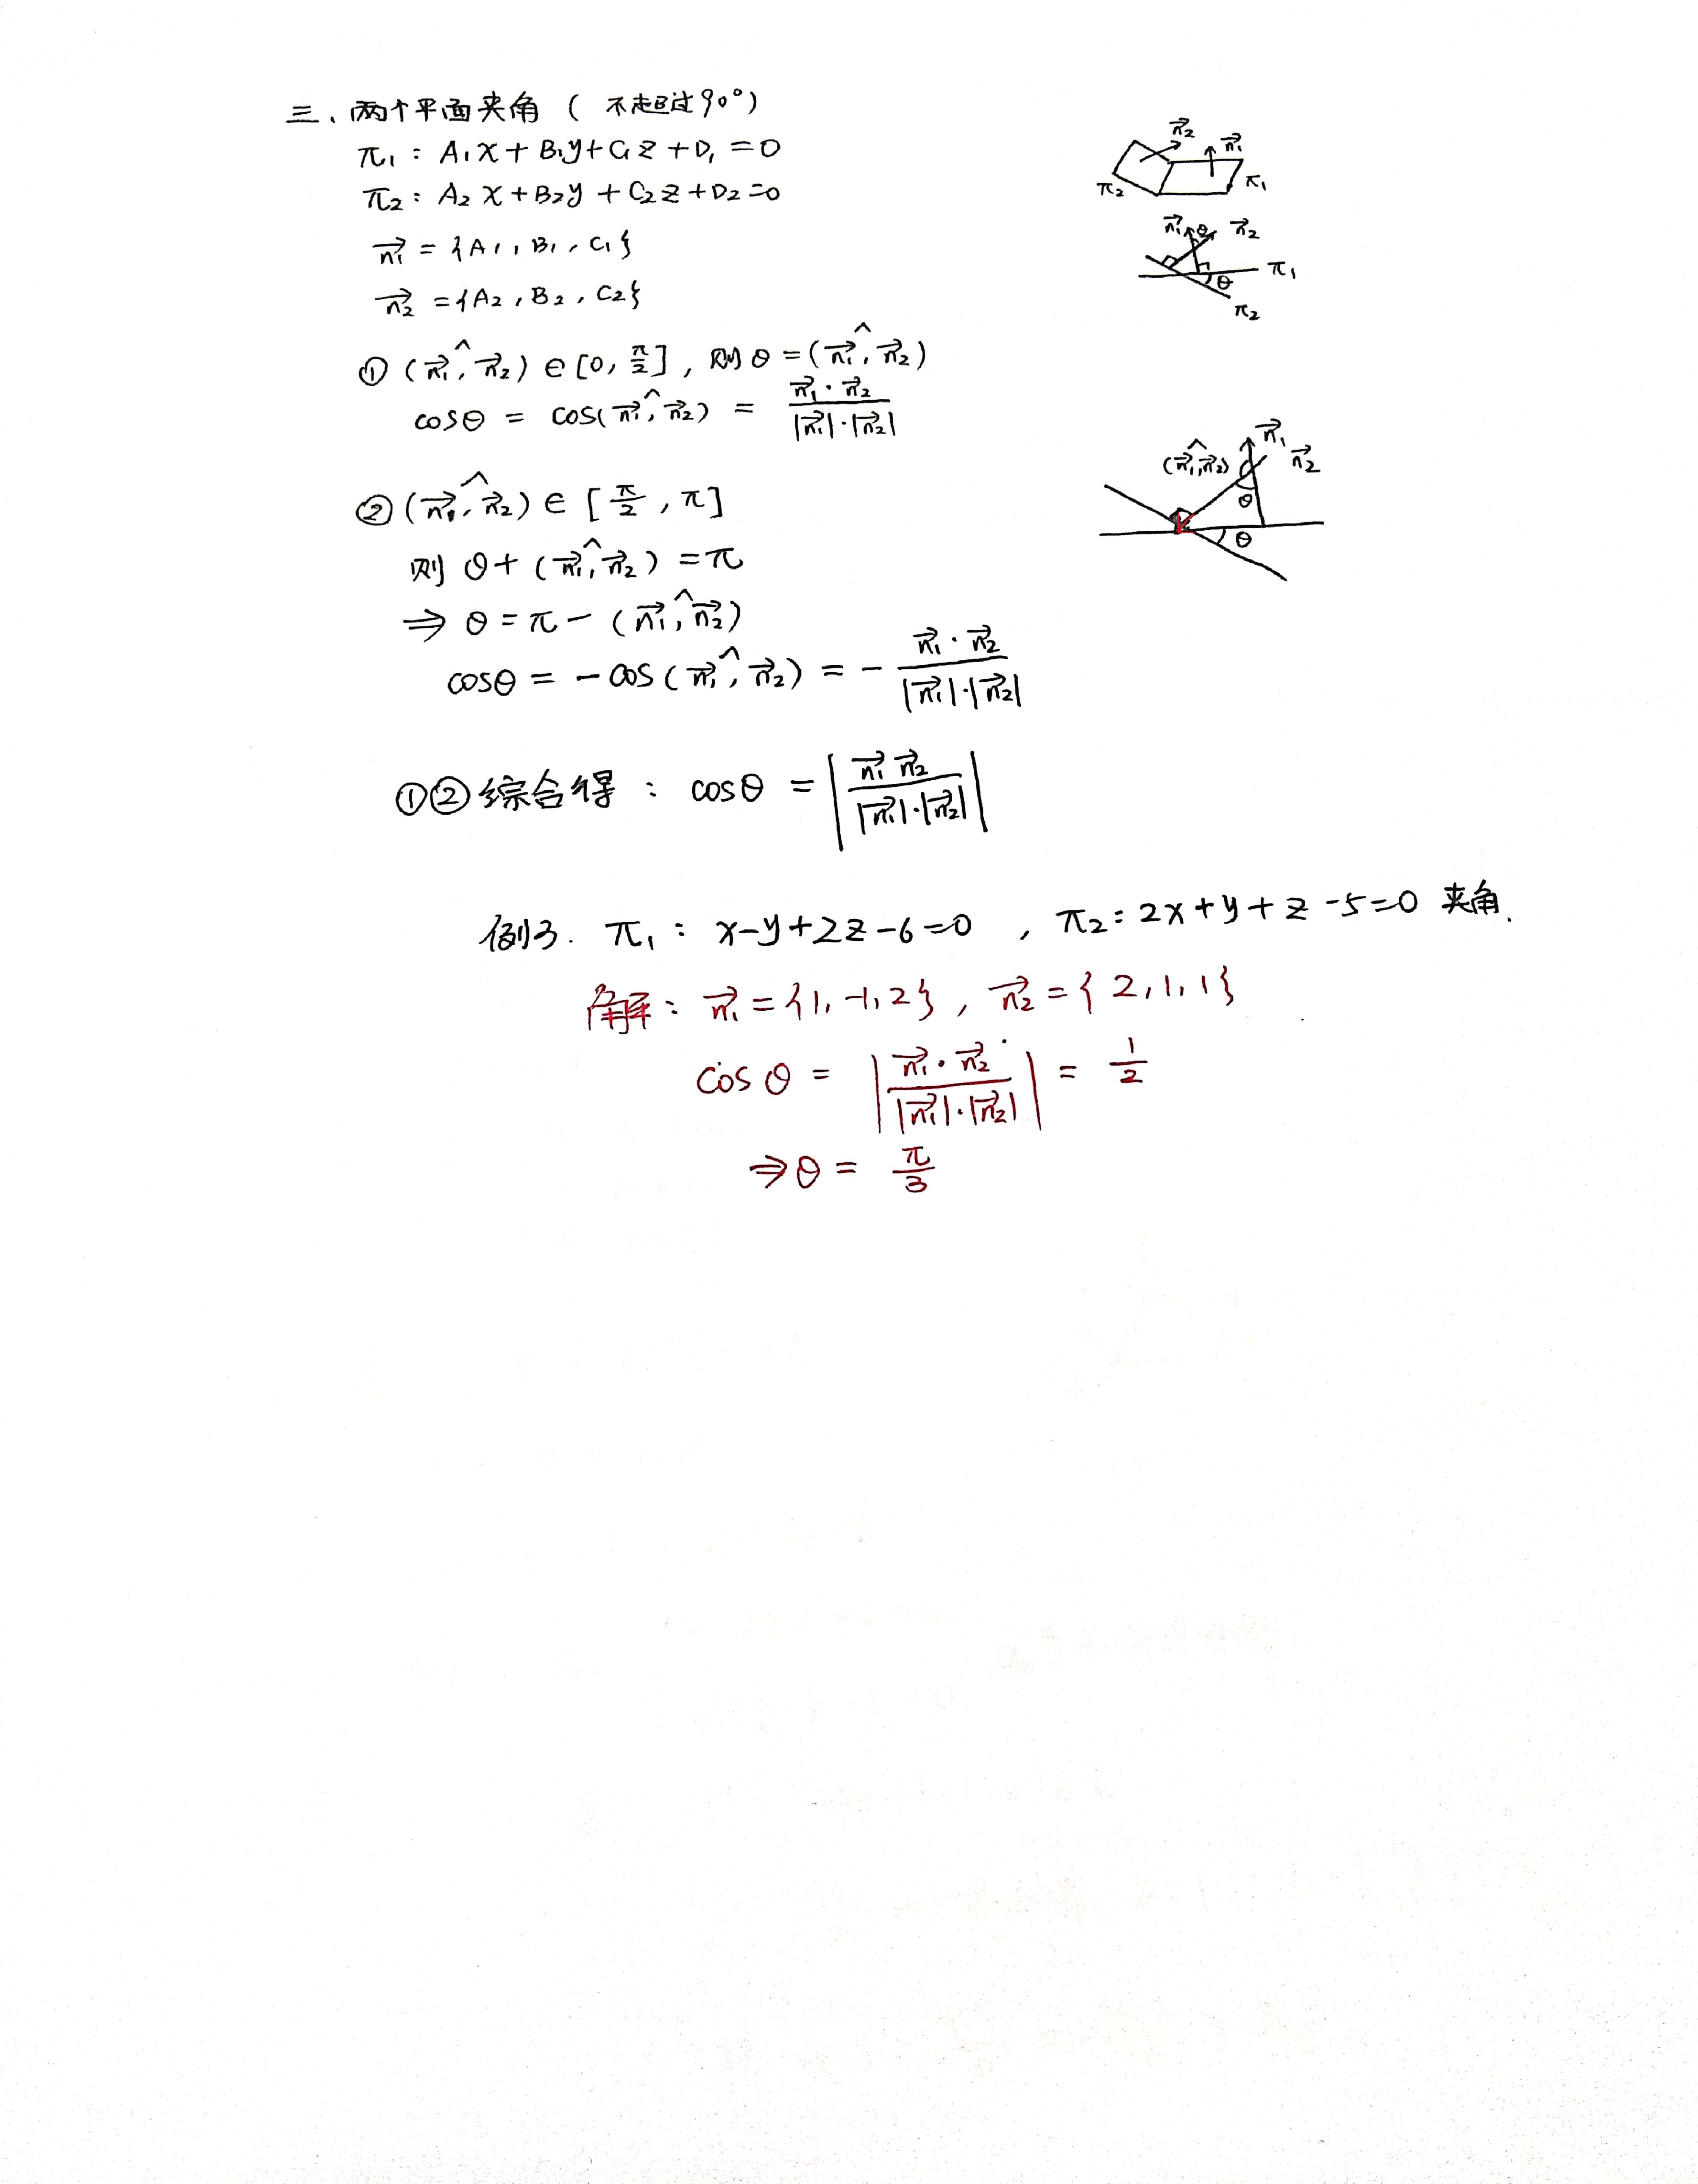 三、两个平面夹角 ( 不超过90°)
π₁ : A₁x + B₁y + C₁z + D₁ = 0
π₂ : A₂x + B₂y + C₂z + D₂ = 0
n₁⃗ = {A₁, B₁, C₁}
n₂⃗ = {A₂, B₂, C₂}
n₂⃗ n₁⃗
π₂ π₁
n₁⃗ θ n₂⃗
π₁
θ
π₂
① (n₁⃗,^n₂⃗) ∈ [0, π/2], 则 θ = (n₁⃗,^n₂⃗)
cosθ = cos(n₁⃗,^n₂⃗) = n₁⃗·n₂⃗ / |n₁⃗|·|n₂⃗|
② (n₁⃗,^n₂⃗) ∈ [π/2, π]
则 θ + (n₁⃗,^n₂⃗) = π
⇒ θ = π − (n₁⃗,^n₂⃗)
cosθ = −cos(n₁⃗,^n₂⃗) = − n₁⃗·n₂⃗ / |n₁⃗|·|n₂⃗|
n₁⃗
(n₁⃗,^n₂⃗) n₂⃗
θ
θ
①②综合得 : cosθ = | n₁⃗ n₂⃗ / |n₁⃗|·|n₂⃗| |
例3. π₁ : x−y+2z−6=0 , π₂ : 2x+y+z−5=0 夹角.
解 : n₁⃗ = {1, −1, 2} , n₂⃗ = {2, 1, 1}
cosθ = | n₁⃗·n₂⃗ / |n₁⃗|·|n₂⃗| | = 1/2
⇒ θ = π/3